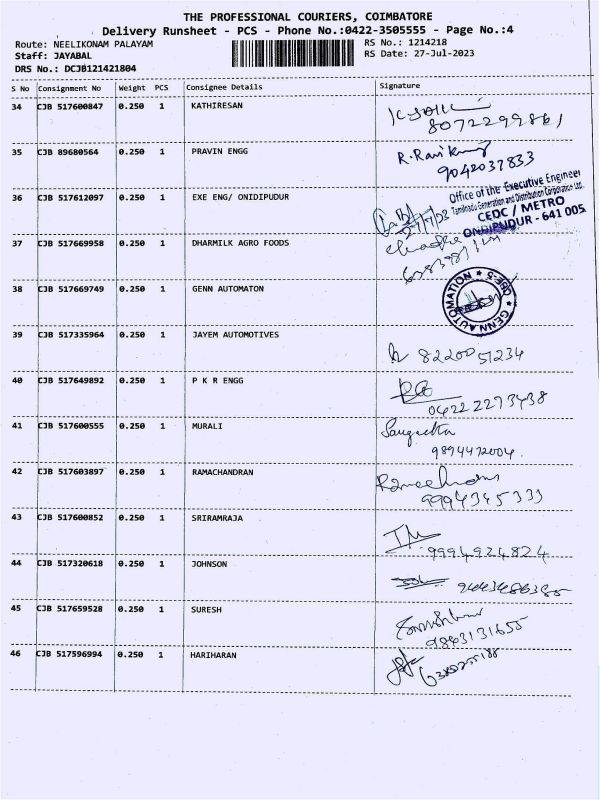 THE PROFESSIONAL COURIERS, COIMBATORE
Delivery Runsheet - PCS - Phone No.:0422-3505555 - Page No.:4
Route: NEELIKONAM PALAYAM
RS No.: 1214218
Staff: JAYABAL
RS Date: 27-Jul-2023
DRS No.: DCJB121421804
S No Consignment No Weight PCS Consignee Details Signature
34 CJB 517600847 0.250 1 KATHIRESAN
8072299861
35 CJB 89680564 0.250 1 PRAVIN ENGG R. Ravikumar
9042037833
36 CJB 517612097 0.250 1 EXE ENG/ ONIDIPUDUR
Office of the Executive Engineer
Tamilnadu Generation and Distribution Corporation Ltd.
CEDC / METRO
ONDIPUDUR - 641 005
37 CJB 517669958 0.250 1 DHARMILK AGRO FOODS
38 CJB 517669749 0.250 1 GENN AUTOMATON
GENN AUTOMATION
39 CJB 517335964 0.250 1 JAYEM AUTOMOTIVES
8220051234
40 CJB 517649892 0.250 1 P K R ENGG
04222273438
41 CJB 517600555 0.250 1 MURALI Sangeetha
9894472004
42 CJB 517603897 0.250 1 RAMACHANDRAN
9994345333
43 CJB 517600852 0.250 1 SRIRAMRAJA
9994924824
44 CJB 517320618 0.250 1 JOHNSON
45 CJB 517659528 0.250 1 SURESH
9843131655
46 CJB 517596994 0.250 1 HARIHARAN